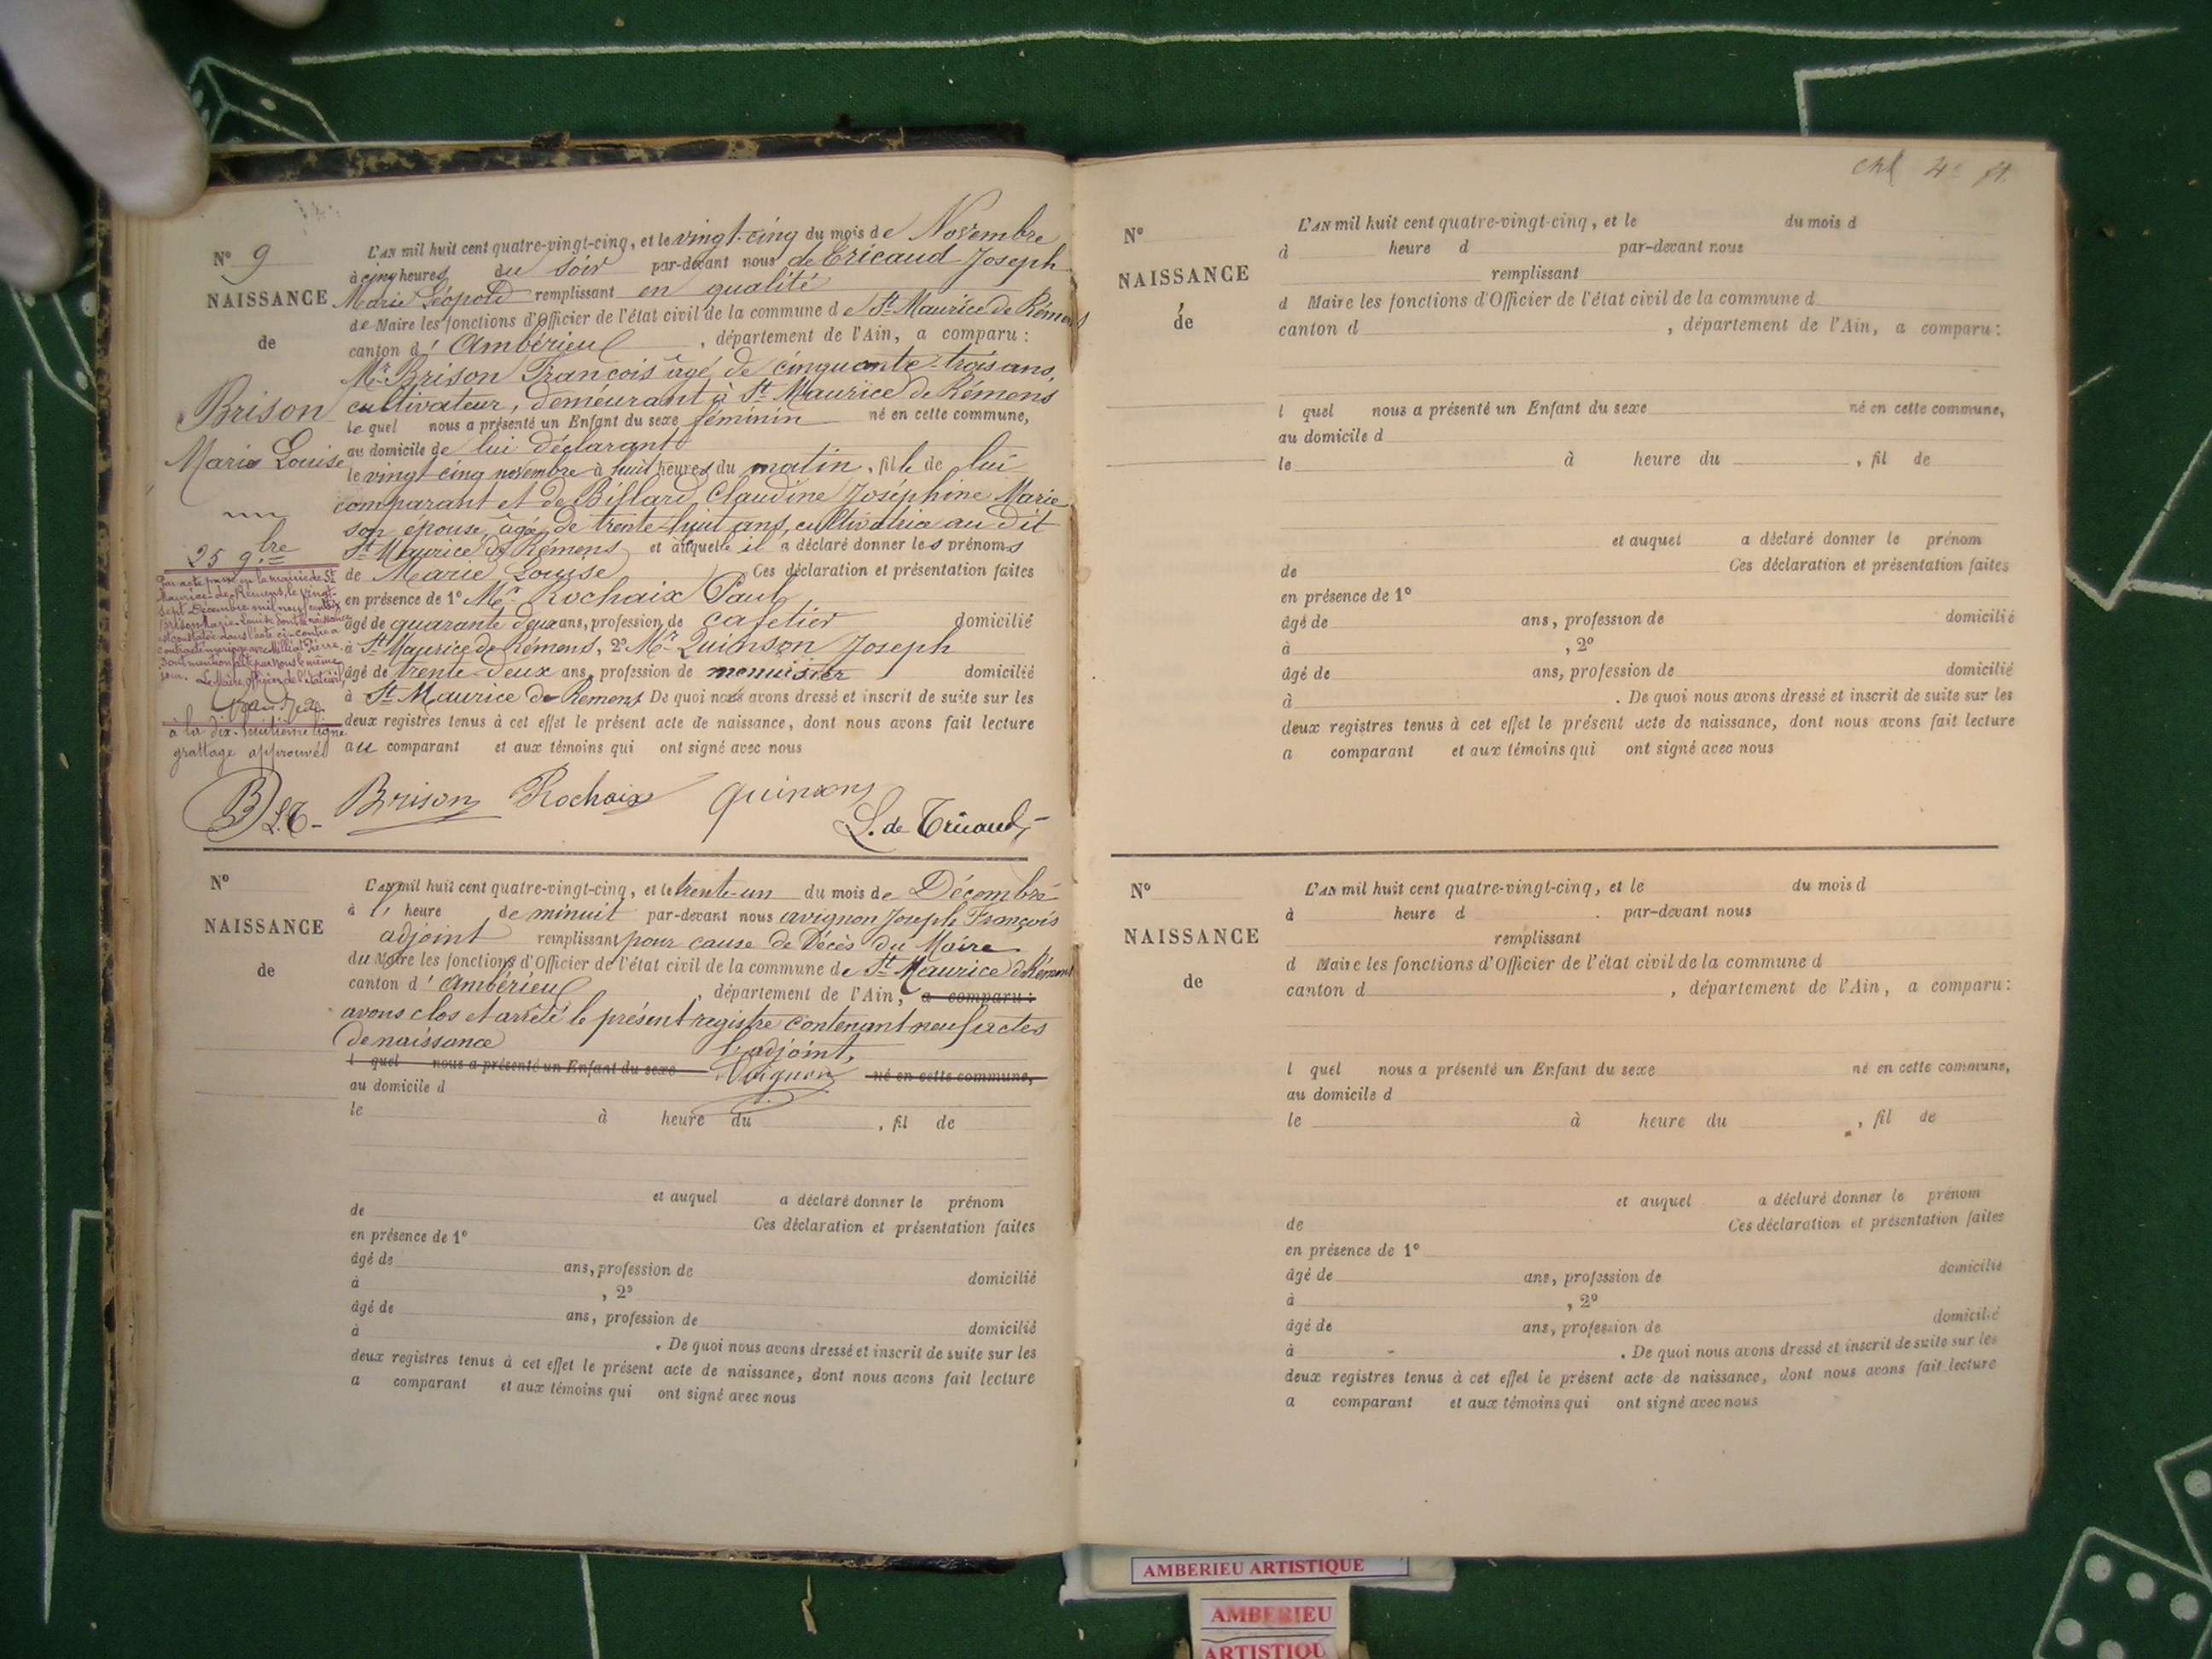 N° 9
NAISSANCE
de
Brison
Marie Louise
25 9.bre
Par acte passé en la mairie de St
Maurice-de-Rémens, le vingt-
sept Décembre mil neuf cent
Brison Marie-Louise dont la naissance
est constatée dans l'acte ci-contre a
contracté mariage avec Milliat Pierre.
Dont mention faite par nous le même
jour. Le Maire, officier de l'état civil,
à la dix-huitième ligne
grattage approuvé
L'AN mil huit cent quatre-vingt-cinq, et le vingt-cinq du mois de Novembre
à cinq heures du soir par-devant nous de Tricaud Joseph
Marie Léopold remplissant en qualité
de Maire les fonctions d'Officier de l'état civil de la commune de St Maurice de Rémens
canton d'Ambérieu, département de l'Ain, a comparu :
Mr Brison François âgé de cinquante-trois ans,
cultivateur, demeurant à St Maurice de Rémens
lequel nous a présenté un Enfant du sexe féminin né en cette commune,
au domicile de lui déclarant
le vingt-cinq novembre à huit heures du matin, fille de lui
comparant et de Billard Claudine Joséphine Marie
son épouse, âgée de trente-huit ans, cultivatrice au dit
St Maurice de Rémens et auquelle il a déclaré donner les prénoms
de Marie Louise Ces déclaration et présentation faites
en présence de 1° Mr Rochaix Paul
âgé de quarante deux ans, profession de cafetier domicilié
à St Maurice de Rémens, 2° Mr Quinson Joseph
âgé de trente-deux ans, profession de menuisier domicilié
à St Maurice de Rémens De quoi nous avons dressé et inscrit de suite sur les
deux registres tenus à cet effet le présent acte de naissance, dont nous avons fait lecture
au comparant et aux témoins qui ont signé avec nous
Brison Rochaix Quinson
L. de Tricaud
N°
NAISSANCE
de
L'AN mil huit cent quatre-vingt-cinq, et le trente-un du mois de Décembre
à l' heure de minuit par-devant nous Avignon Joseph François
adjoint remplissant pour cause de Décès du Maire
du Maire les fonctions d'Officier de l'état civil de la commune de St Maurice de Rémens
canton d'Ambérieu, département de l'Ain, a comparu :
avons clos et arrêté le présent registre contenant neuf actes
de naissance l'adjoint,
l quel nous a présenté un Enfant du sexe Avignon né en cette commune,
au domicile d
le à heure du , fil de
et auquel a déclaré donner le prénom
de Ces déclaration et présentation faites
en présence de 1°
âgé de ans, profession de domicilié
à , 2°
âgé de ans, profession de domicilié
à . De quoi nous avons dressé et inscrit de suite sur les
deux registres tenus à cet effet le présent acte de naissance, dont nous avons fait lecture
a comparant et aux témoins qui ont signé avec nous
N°
NAISSANCE
de
L'AN mil huit cent quatre-vingt-cinq, et le du mois d
à heure d par-devant nous
remplissant
d Maire les fonctions d'Officier de l'état civil de la commune d
canton d , département de l'Ain, a comparu :
l quel nous a présenté un Enfant du sexe né en cette commune,
au domicile d
le à heure du , fil de
et auquel a déclaré donner le prénom
de Ces déclaration et présentation faites
en présence de 1°
âgé de ans, profession de domicilié
à , 2°
âgé de ans, profession de domicilié
à . De quoi nous avons dressé et inscrit de suite sur les
deux registres tenus à cet effet le présent acte de naissance, dont nous avons fait lecture
a comparant et aux témoins qui ont signé avec nous
N°
NAISSANCE
de
L'AN mil huit cent quatre-vingt-cinq, et le du mois d
à heure d par-devant nous
remplissant
d Maire les fonctions d'Officier de l'état civil de la commune d
canton d , département de l'Ain, a comparu :
l quel nous a présenté un Enfant du sexe né en cette commune,
au domicile d
le à heure du , fil de
et auquel a déclaré donner le prénom
de Ces déclaration et présentation faites
en présence de 1°
âgé de ans, profession de domicilié
à , 2°
âgé de ans, profession de domicilié
à . De quoi nous avons dressé et inscrit de suite sur les
deux registres tenus à cet effet le présent acte de naissance, dont nous avons fait lecture
a comparant et aux témoins qui ont signé avec nous
AMBERIEU ARTISTIQUE
AMBERIEU
ARTISTIQU